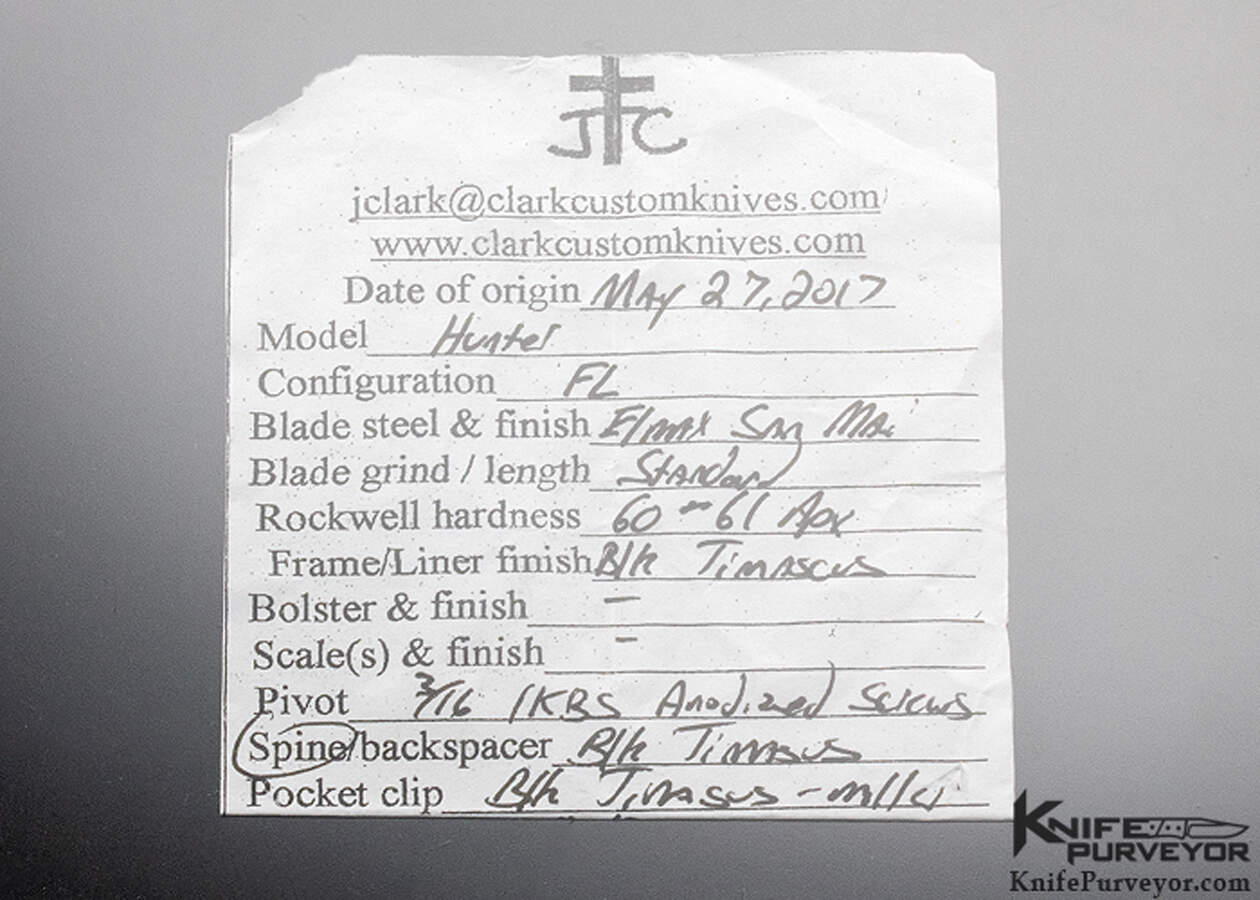 JTC
jclark@clarkcustomknives.com
www.clarkcustomknives.com
Date of origin May 27, 2017
Model Hunter
Configuration FL
Blade steel & finish Elmax San Mai
Blade grind / length Standard
Rockwell hardness 60 - 61 Apx
Frame/Liner finish Blk Timascus
Bolster & finish -
Scale(s) & finish -
Pivot 3/16 IKBS Anodized Screws
Spine/backspacer Blk Timascus
Pocket clip Blk Timascus -
KNIFE
PURVEYOR
KnifePurveyor.com